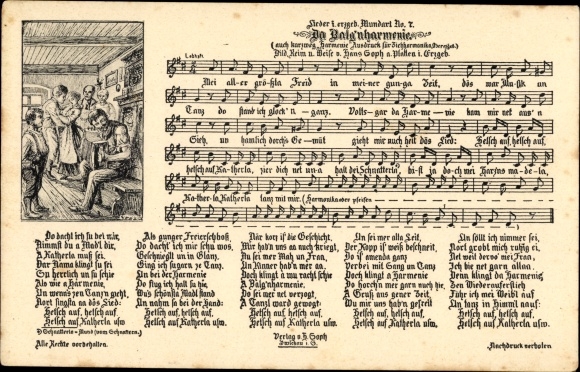 Lieder i. erzgeb. Mundart No. 7.
Da Balg'nharmenie.
(auch kurzweg „Harmenie" Ausdruck für Ziehharmonika, Bergbal.)
Bild, Reim u. Weise v. Hans Soph a. Platten i. Erzgeb.
Lebhaft.
Mei all-er größta Freid in mei-ner gun-ga Zeit, dös war Musikk un
Tanz do stand ich glöck'n-ganz. Volls gar da Har-me-nie kam mir net aus'n
Sieh, un hamlich dorchs Ge-müt gieht mir nuch heit dös Lied: Helsch auf, helsch auf,
helsch auf, Ka-therla, zier dich net un a halt dei Schnatterla, bist ja do-ch mei Harzns ma-de-la,
Ka-ther-la, Katherla tanz mit mir. (Harmonika oder pfeifen
Do dacht ich su bei mir,
Nimmst du a Madl dir,
A Katherla muß sei.
Dar Nama klingt su fei
Su herrlich un su schie
Als wie a Harmenie,
Un wenns zen Tanzn gieht,
Dort singsta na dös Lied:
Helsch auf, helsch auf,
Helsch auf Katherla usw.
Als gunger Freierschboß
Do dacht ich mir schu wos,
Geschniegelt un in Glanz,
Ging ich sugarn ze Tanz.
Un bei der Harmenie
Do flug ich halt su hie,
Wu's schönsta Madl stand
Un nahm su bei der Hand:
Helsch auf, helsch auf,
Helsch auf Katherla usw.
Nar korz is die Geschicht,
Mir hab'n uns aa nuch kriegt,
Nu sei mer Mah un Fraa,
Un Kinner hab'n mer aa.
Doch klingt a wu racht schie
A Balg'nharmenie,
Do sei mer net verzogt,
A Tanzl ward gewogt:
Helsch auf, helsch auf,
Helsch auf Katherla usw.
Un sei mer alta Leit,
Der Kopp is' weiß beschneit,
Do is amenda ganz
Verbei mit Gang un Tanz
Doch klingt a Harmenie
Do horch'n mer garn nuch hie,
A Gruß aus garer Zeit,
Wu mir uns hab'n gefreit
Helsch auf, helsch auf,
Helsch auf Katherla usw.
Un söllt ich nimmer sei,
Root grobt mich ruhig ei,
Net weit dervo mei Fraa,
Ich lie net garn allaa.
Denn klingt da Harmenie,
Den Wiederauferstieh
Führ ich mei Weibl auf
Un tanz in Himml nauf:
Helsch auf, helsch auf,
Helsch auf Katherla usw.
Alle Rechte vorbehalten.
Verlag v. H. Soph
Zwickau i. S.
Nachdruck verboten.